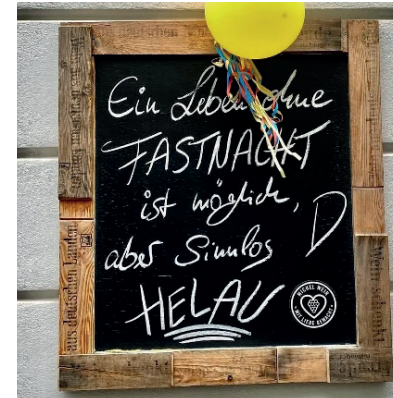 Ein Leben ohne
FASTNACHT
ist möglich,
aber Sinnlos :D
HELAU
MICHEL WEIN
MIT LIEBE GEMACHT
aus deutschen Landen